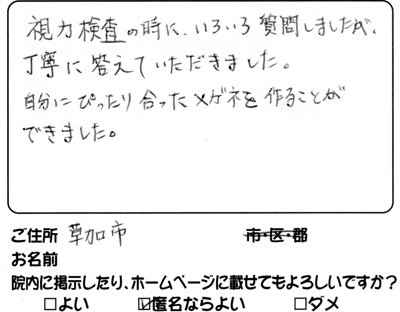 視力検査の時に、いろいろ質問しましたが、
丁寧に答えていただきました。
自分にぴったり合ったメガネを作ることが
できました。
ご住所 草加市 市・区・郡
お名前
院内に掲示したり、ホームページに載せてもよろしいですか?
□よい ☑匿名ならよい □ダメ